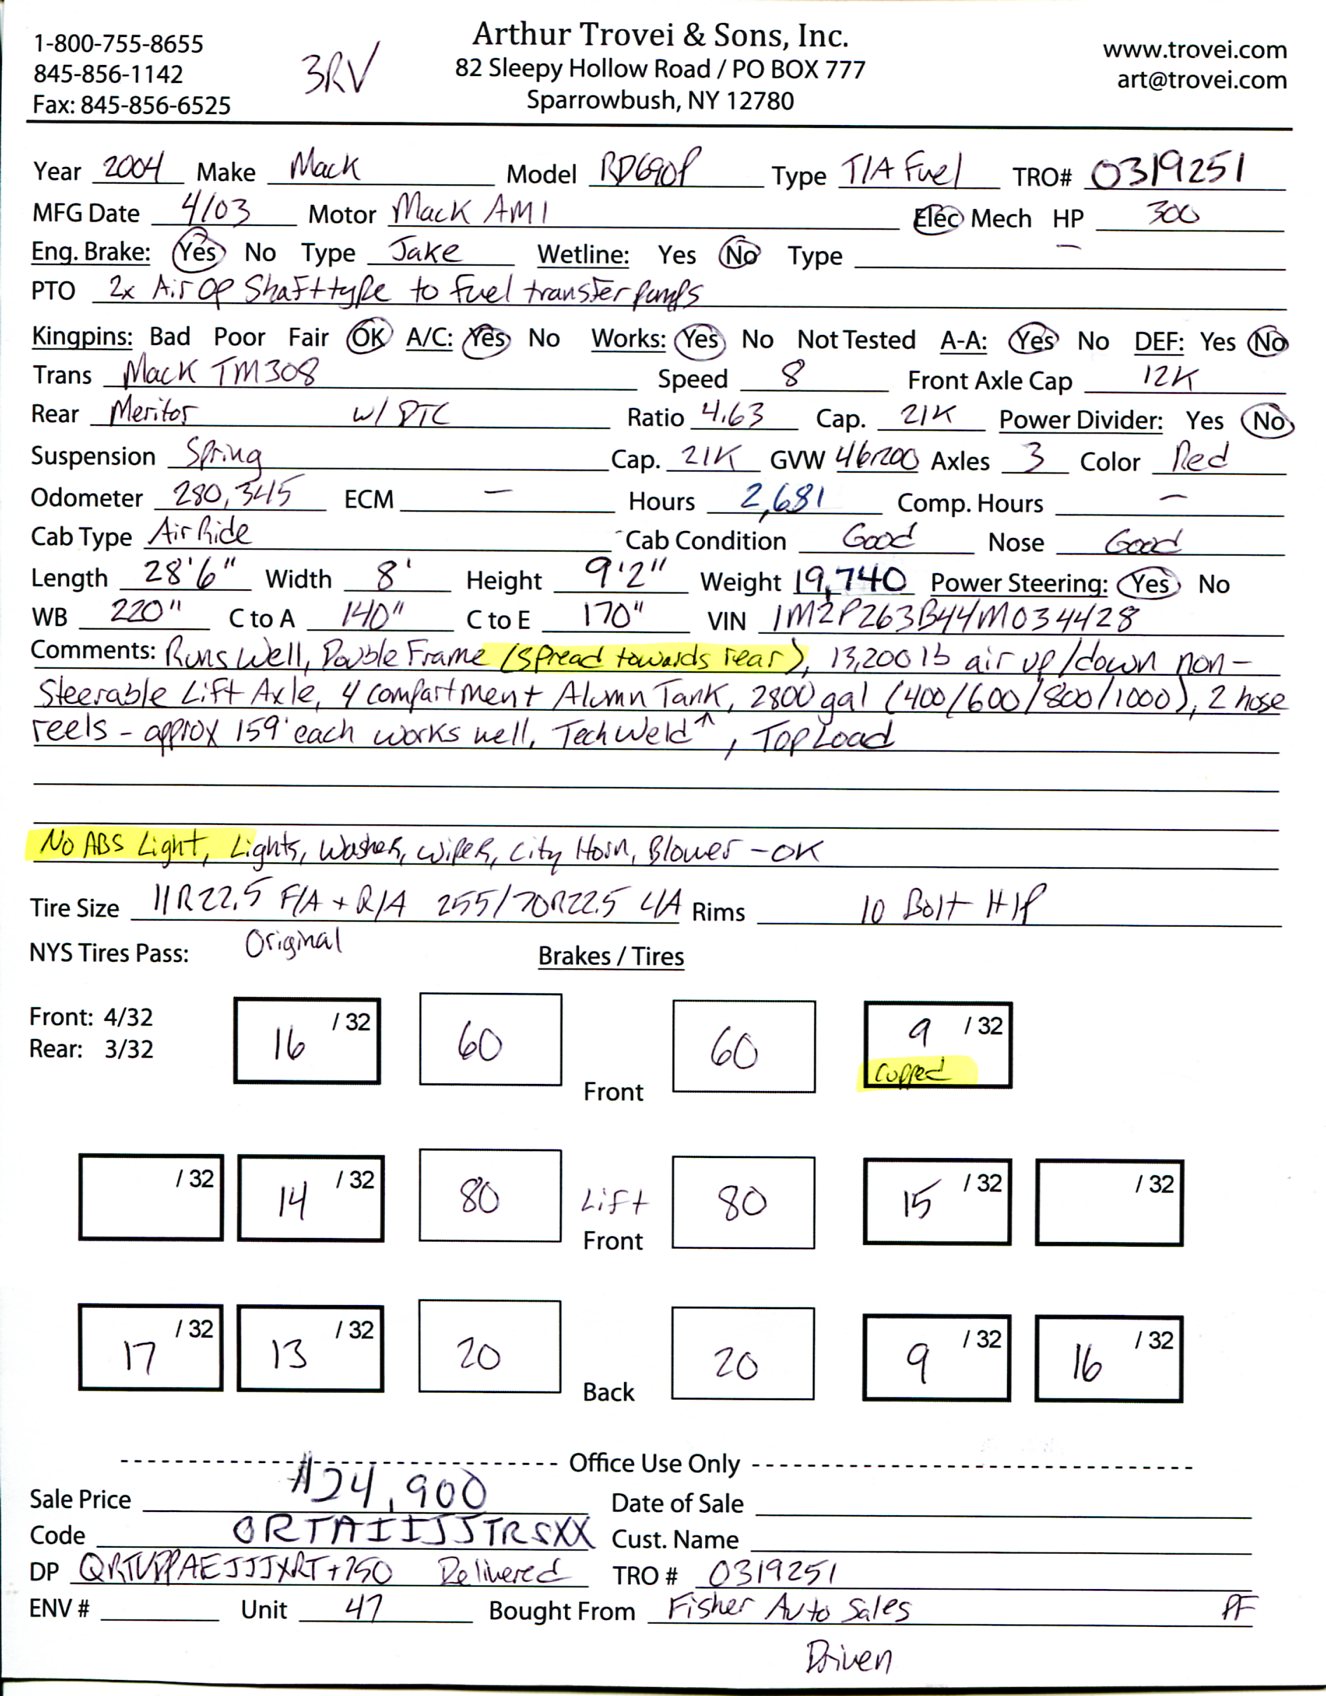 1-800-755-8655
845-856-1142
Fax: 845-856-6525
3RV
Arthur Trovei & Sons, Inc.
82 Sleepy Hollow Road / PO BOX 777
Sparrowbush, NY 12780
www.trovei.com
art@trovei.com
Year 2004 Make Mack Model RD690P Type T/A Fuel TRO# 0319251
MFG Date 4/03 Motor Mack AMI Elec Mech HP 300
Eng. Brake: Yes No Type Jake Wetline: Yes No Type —
PTO 2x Air Op Shaft type to Fuel transfer pumps
Kingpins: Bad Poor Fair OK A/C: Yes No Works: Yes No Not Tested A-A: Yes No DEF: Yes No
Trans Mack TM308 Speed 8 Front Axle Cap 12K
Rear Meritor w/ DTC Ratio 4.63 Cap. 21K Power Divider: Yes No
Suspension Spring Cap. 21K GVW 46,200 Axles 3 Color Red
Odometer 280,345 ECM — Hours 2,681 Comp. Hours —
Cab Type Air Ride Cab Condition Good Nose Good
Length 28'6" Width 8' Height 9'2" Weight 19,740 Power Steering: Yes No
WB 220" C to A 140" C to E 170" VIN 1M2P263B44M034428
Comments: Runs Well, Double Frame (Spread towards rear), 13,200 lb air up/down non-
Steerable Lift Axle, 4 compartment Alumn Tank, 2800 gal (400/600/800/1000), 2 hose
reels - approx 159' each works well, Tech Weld↑, Top Load
No ABS Light, Lights, Washer, Wiper, City Horn, Blower - OK
Tire Size 11R22.5 F/A + R/A 255/70R22.5 L/A Rims 10 Bolt H/P
NYS Tires Pass: Original Brakes / Tires
Front: 4/32
Rear: 3/32
16 /32 60 Front 60 9 /32
Cupped
/32 14 /32 80 Lift Front 80 15 /32 /32
17 /32 13 /32 20 Back 20 9 /32 16 /32
Office Use Only
Sale Price $24,900 Date of Sale
Code ORTAIIJJTRSXX Cust. Name
DP +750 Delivered TRO # 0319251
ENV # Unit 47 Bought From Fisher Auto Sales PF
Driven